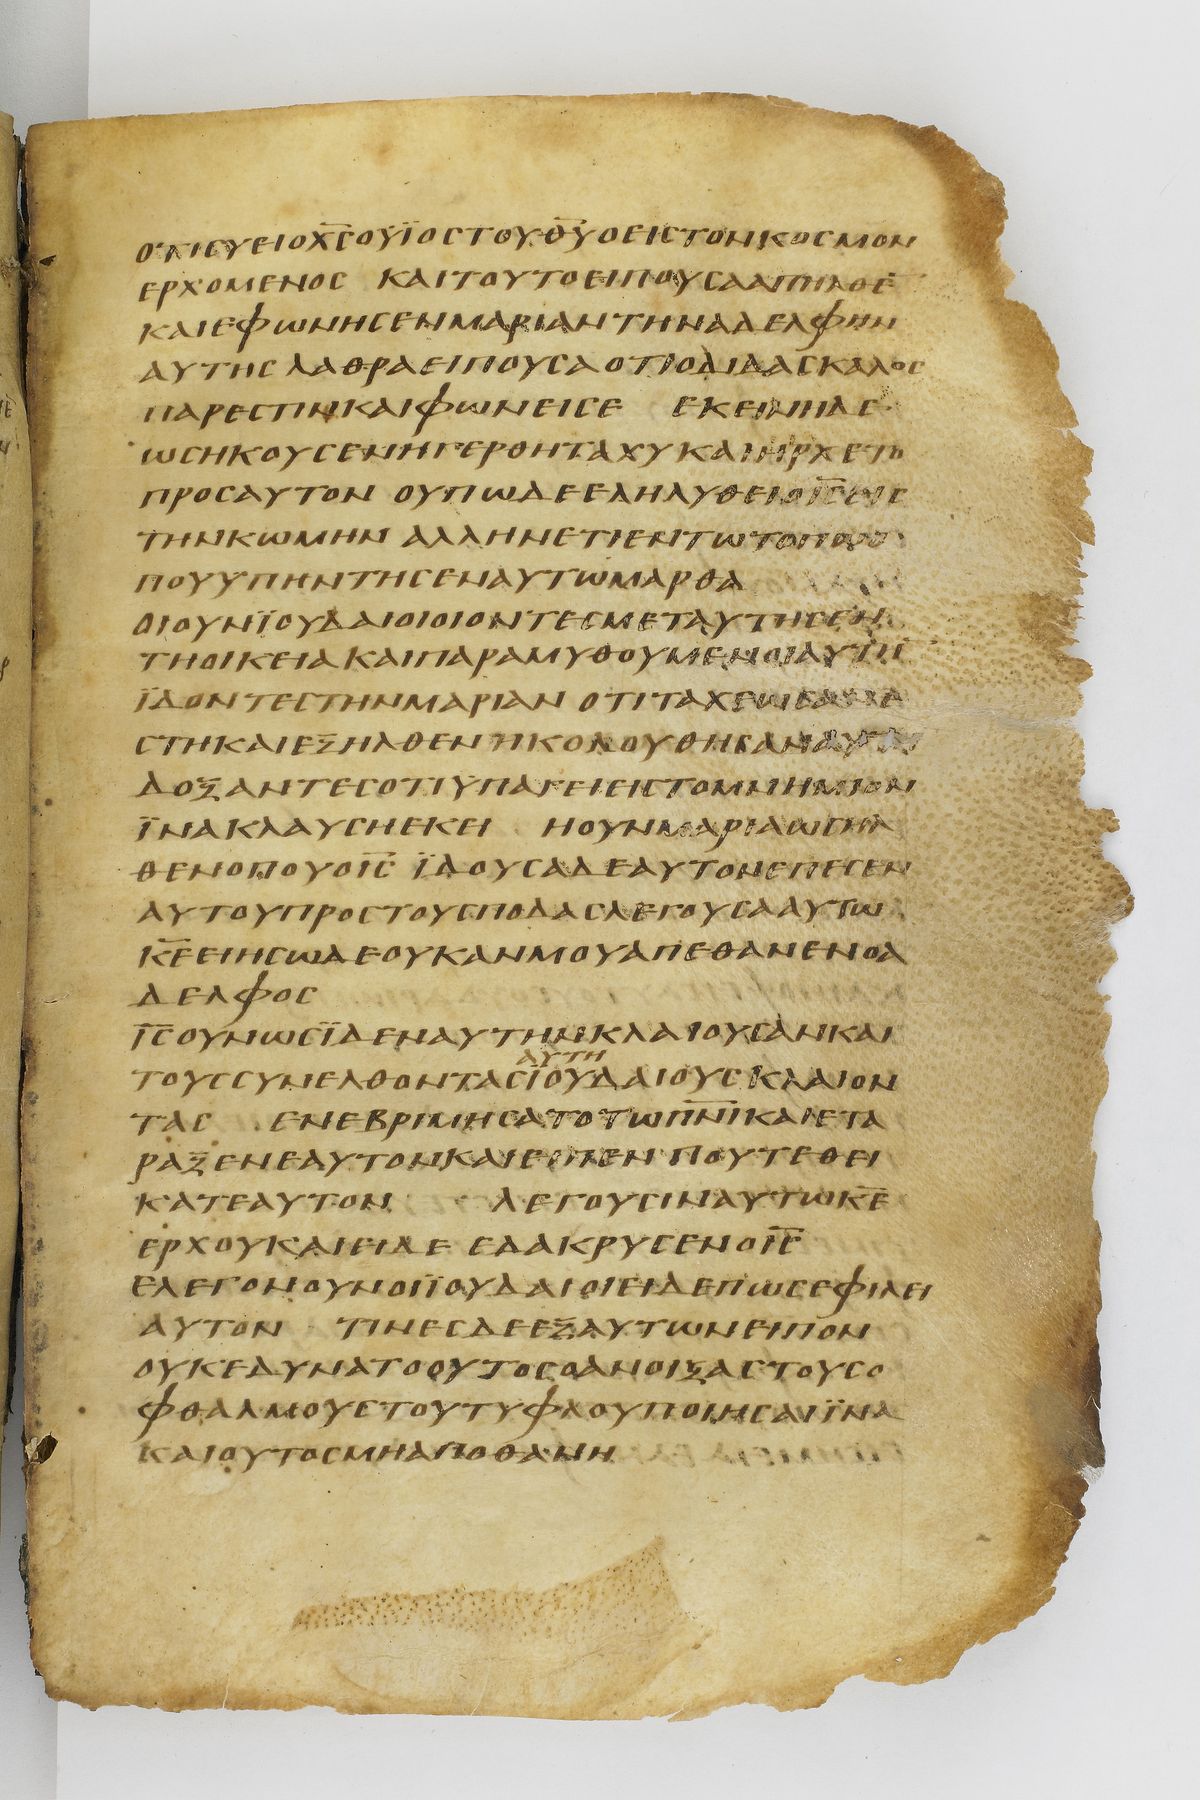 ΟΤΙ ΣΥ ΕΙ Ο Χ̅Σ̅ Ο ΥΪΟΣ ΤΟΥ Θ̅Υ̅ Ο ΕΙΣ ΤΟΝ ΚΟΣΜΟΝ
ΕΡΧΟΜΕΝΟΣ ΚΑΙ ΤΟΥΤΟ ΕΙΠΟΥΣΑ ΑΠΗΛΘΕ̅
ΚΑΙ ΕΦΩΝΗΣΕΝ ΜΑΡΙΑΝ ΤΗΝ ΑΔΕΛΦΗΝ
ΑΥΤΗΣ ΛΑΘΡΑ ΕΙΠΟΥΣΑ ΟΤΙ Ο ΔΙΔΑΣΚΑΛΟΣ
ΠΑΡΕΣΤΙΝ ΚΑΙ ΦΩΝΕΙ ΣΕ ΕΚΕΙΝΗ ΔΕ
ΩΣ ΗΚΟΥΣΕΝ ΗΓΕΡΘΗ ΤΑΧΥ ΚΑΙ ΗΡΧΕΤΟ
ΠΡΟΣ ΑΥΤΟΝ ΟΥΠΩ ΔΕ ΕΛΗΛΥΘΕΙ Ο Ι̅Σ̅ ΕΙΣ
ΤΗΝ ΚΩΜΗΝ ΑΛΛ ΗΝ ΕΤΙ ΕΝ ΤΩ ΤΟΠΩ Ο
ΠΟΥ ΥΠΗΝΤΗΣΕΝ ΑΥΤΩ ΜΑΡΘΑ
ΟΙ ΟΥΝ ΪΟΥΔΑΙΟΙ ΟΙ ΟΝΤΕΣ ΜΕΤ ΑΥΤΗΣ ΕΝ
ΤΗ ΟΙΚΕΙΑ ΚΑΙ ΠΑΡΑΜΥΘΟΥΜΕΝΟΙ ΑΥΤΗ̅
ΪΔΟΝΤΕΣ ΤΗΝ ΜΑΡΙΑΝ ΟΤΙ ΤΑΧΕΩΣ ΑΝΕ
ΣΤΗ ΚΑΙ ΕΞΗΛΘΕΝ ΗΚΟΛΟΥΘΗΣΑΝ ΑΥΤΗ
ΔΟΞΑΝΤΕΣ ΟΤΙ ΫΠΑΓΕΙ ΕΙΣ ΤΟ ΜΝΗΜΙΟΝ
ΪΝΑ ΚΛΑΥΣΗ ΕΚΕΙ Η ΟΥΝ ΜΑΡΙΑ ΩΣ ΗΛ
ΘΕΝ ΟΠΟΥ Ο Ι̅Σ̅ ΪΔΟΥΣΑ ΔΕ ΑΥΤΟΝ ΕΠΕΣΕΝ
ΑΥΤΟΥ ΠΡΟΣ ΤΟΥΣ ΠΟΔΑΣ ΛΕΓΟΥΣΑ ΑΥΤΩ
Κ̅Ε̅ ΕΙ ΗΣ ΩΔΕ ΟΥΚ ΑΝ ΜΟΥ ΑΠΕΘΑΝΕΝ Ο Α
ΔΕΛΦΟΣ
Ι̅Σ̅ ΟΥΝ ΩΣ ΪΔΕΝ ΑΥΤΗΝ ΚΛΑΙΟΥΣΑΝ ΚΑΙ
ΑΥΤΗ
ΤΟΥΣ ΣΥΝΕΛΘΟΝΤΑΣ ΪΟΥΔΑΙΟΥΣ ΚΛΑΙΟΝ
ΤΑΣ ΕΝΕΒΡΙΜΗΣΑΤΟ ΤΩ Π̅Ν̅Ι̅ ΚΑΙ ΕΤΑ
ΡΑΞΕΝ ΕΑΥΤΟΝ ΚΑΙ ΕΙΠΕΝ ΠΟΥ ΤΕΘΕΙ
ΚΑΤΕ ΑΥΤΟΝ ΛΕΓΟΥΣΙΝ ΑΥΤΩ Κ̅Ε̅
ΕΡΧΟΥ ΚΑΙ ΕΙΔΕ ΕΔΑΚΡΥΣΕΝ Ο Ι̅Σ̅
ΕΛΕΓΟΝ ΟΥΝ ΟΙ ΪΟΥΔΑΙΟΙ ΕΙΔΕ ΠΩΣ ΕΦΙΛΕΙ
ΑΥΤΟΝ ΤΙΝΕΣ ΔΕ ΕΞ ΑΥΤΩΝ ΕΙΠΟΝ
ΟΥΚ ΕΔΥΝΑΤΟ ΟΥΤΟΣ Ο ΑΝΟΙΞΑΣ ΤΟΥΣ Ο
ΦΘΑΛΜΟΥΣ ΤΟΥ ΤΥΦΛΟΥ ΠΟΙΗΣΑΙ ΪΝΑ
ΚΑΙ ΟΥΤΟΣ ΜΗ ΑΠΟΘΑΝΗ